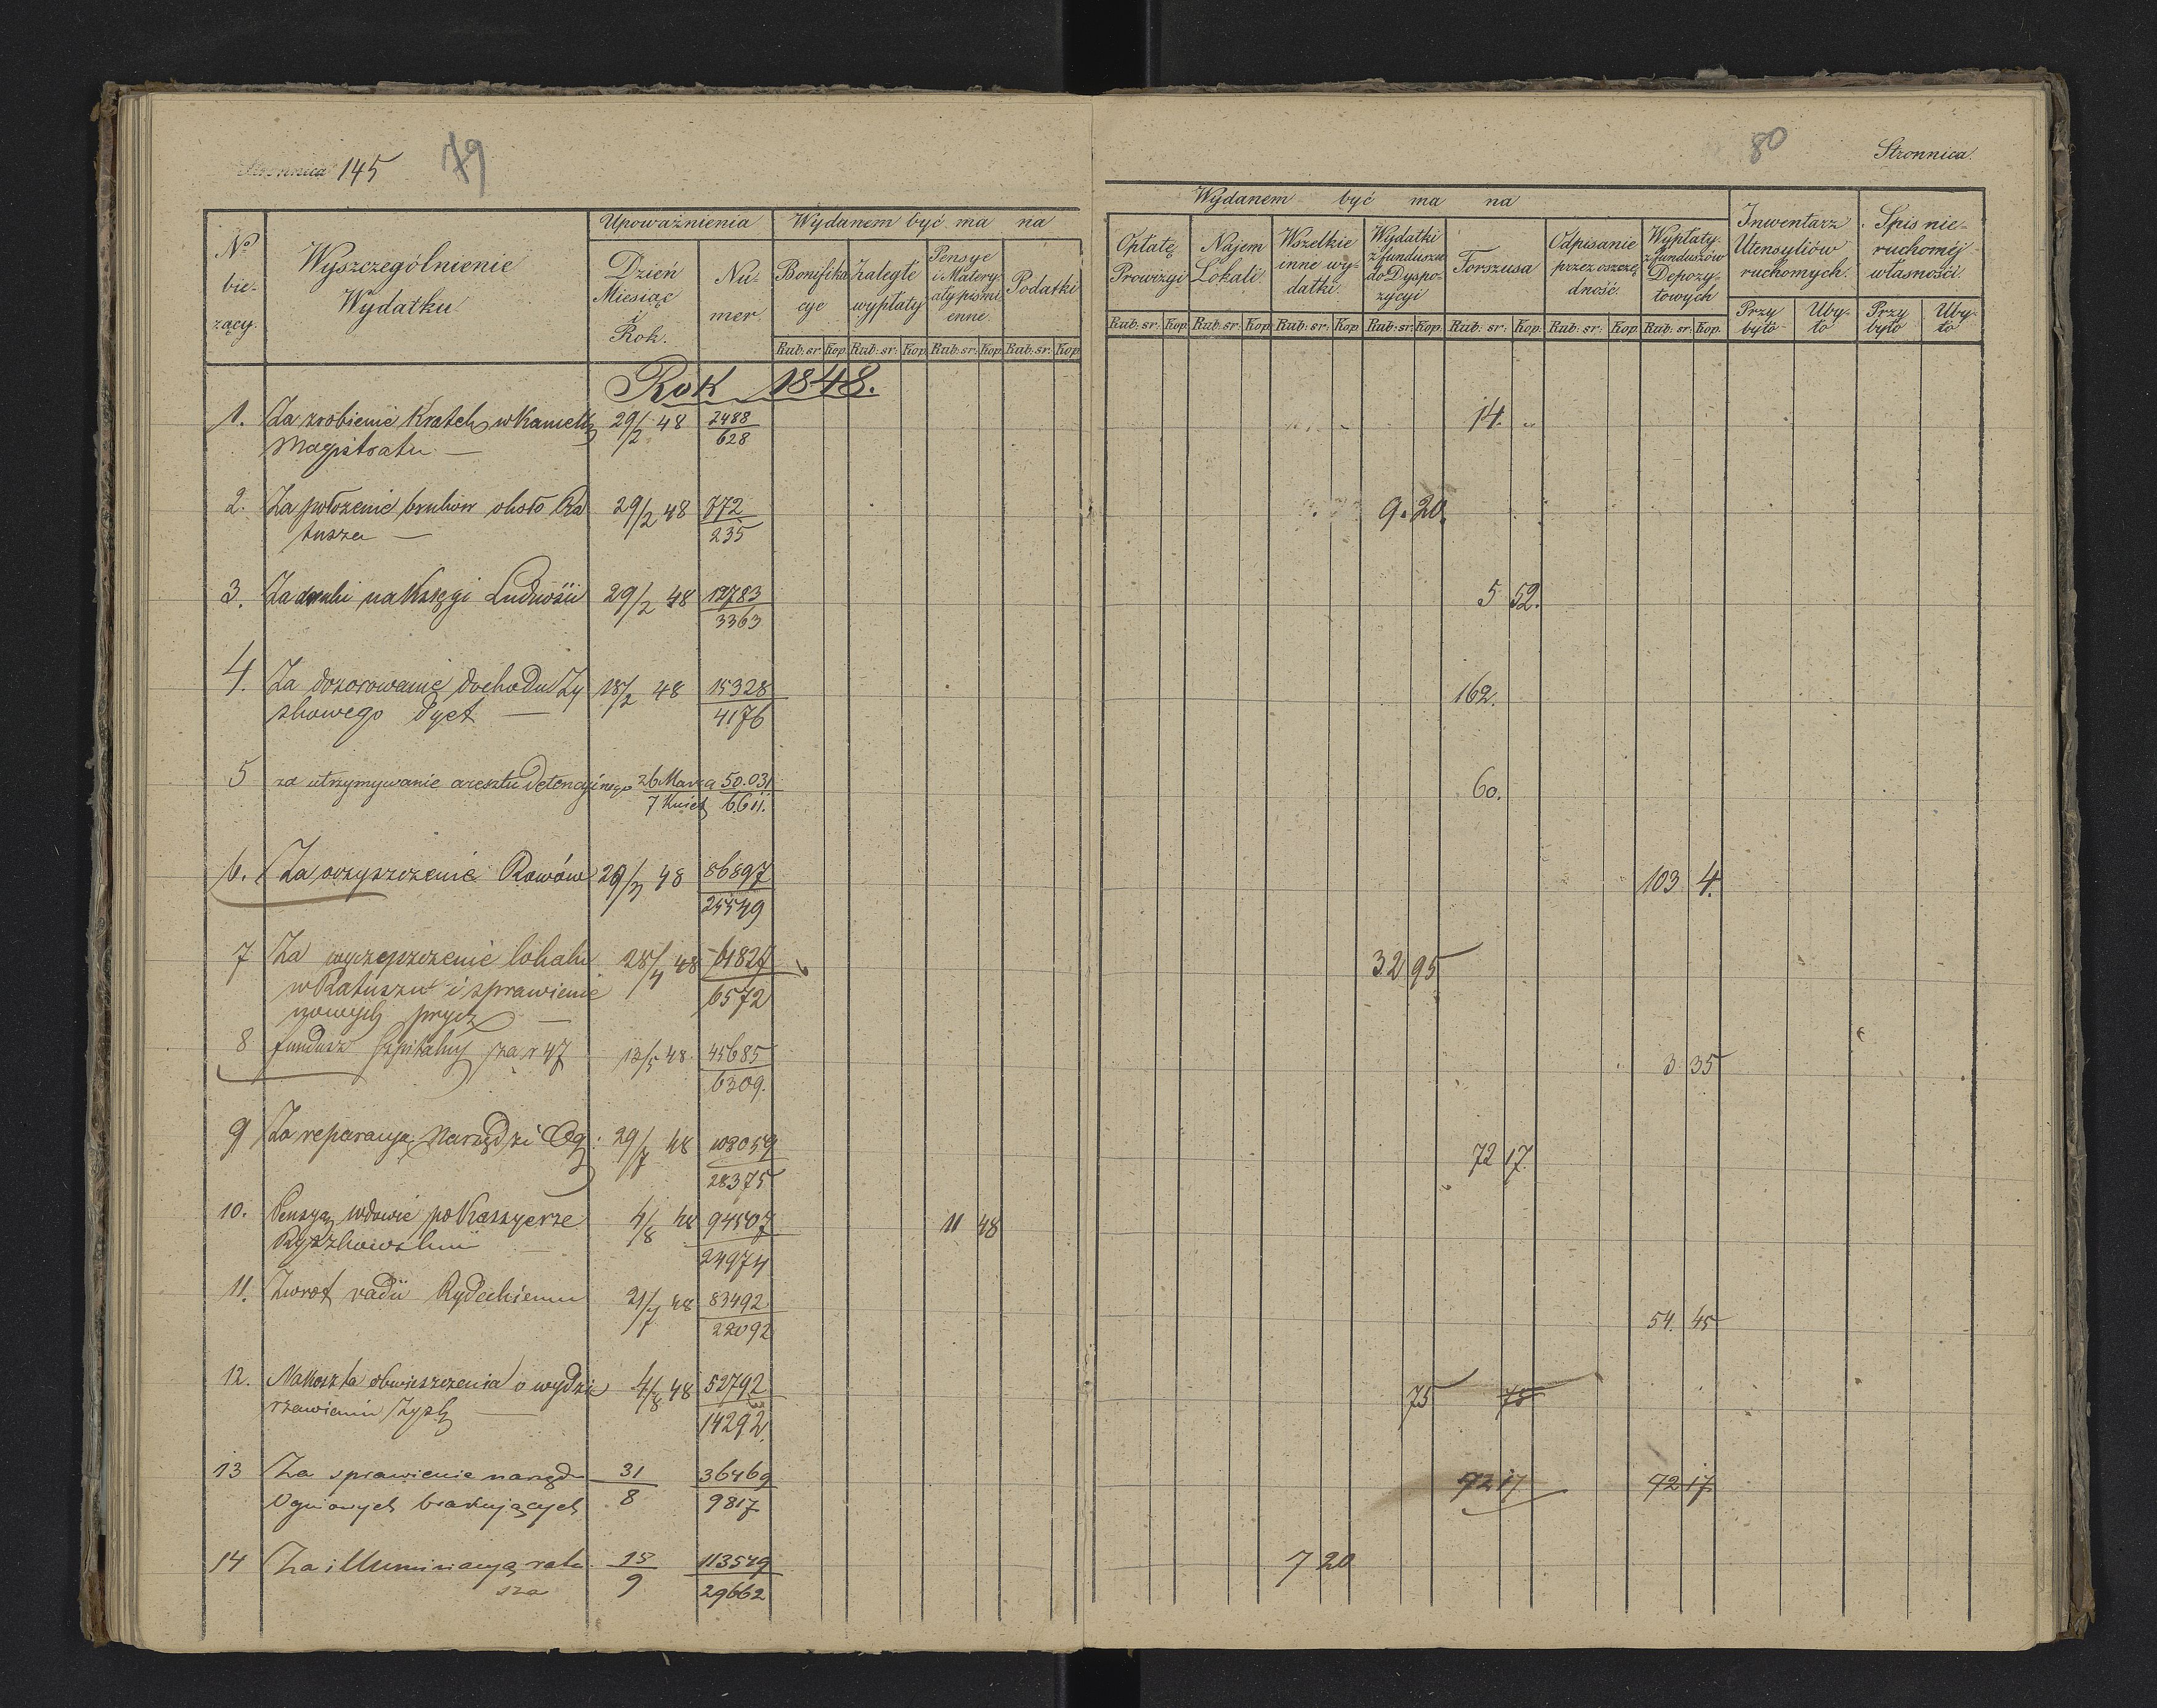 Stronnica 145 79
No bieżący.
Wyszczególnienie Wydatku
Upoważnienia
Dzień Miesiąc i Rok.
Numer.
Wydanem być ma na
Bonifikacye
Zaległe wypłaty
Pensye i Materyały piśmienne
Podatki
Rub: sr: Kop Rub: sr: Kop Rub: sr: Kop Rub: sr: Kop
80 Stronnica.
Wydanem być ma na
Opłatę Prowizyi
Najem Lokali
Wszelkie inne wydatki.
Wydatki z funduszu do Dyspozycyi
Forszusa
Odpisanie przez oszczędność.
Wypłaty z funduszów Depozytowych
Inwentarz Utensyliów ruchomych.
Spis nieruchomej własności
Rub: sr: Kop Rub: sr: Kop Rub: sr: Kop Rub: sr: Kop Rub: sr: Kop Rub: sr: Kop Rub: sr: Kop
Przybyło Ubyło Przybyło Ubyło
Rok 1848.
1. Za zrobienie Kratek w Kancell 29/2 48 2488 14. „
Magistratu — 628
2. Za położenie bruków około Ra 29/2 48 772 9. 20.
tusza — 235
3. Za druki na Księgi Ludności 29/2 48 12783 5 52.
3363
4. Za dozorowanie dochodu Zy 18/2 48 15328 162.
skowego dyet — 4176
5 za utrzymywanie aresztu detencyinego 26 Marca 50.031 60.
7 Kwiet 6611.
6. Za oczyszczenie Rowów 29/3 48 86897 103 4.
25549
7 Za wyczyszczenie lokalu 28/4 48 61827 32 95
w Ratuszu i sprawienie 6572
nowych prycz —
8 fundusz Szpitalny za r 47 13/5 48. 45685 3. 35
6309.
9 Za reparacyą Narzędzi Og. 29/7 48 108059 72 17.
28375
10. Pensya wdowie po Kassyerze 4/8 48 94507 11 48
Ryszkowskim — 24974
11. Zwrot vadii Rydeckiemu 21/7 48 83492 54. 45
22092
12. Na koszta obwieszczenia o wydzie 4/8 48 52792 75 75
rzawieniu Zysk — 14292.
13 Za sprawienie narzędzi 31 36469 72 17 72 17.
Ogniowych brakujących 8 9817
14 Za illuminacyą ratu 15 113549 7 20
sza 9 29662